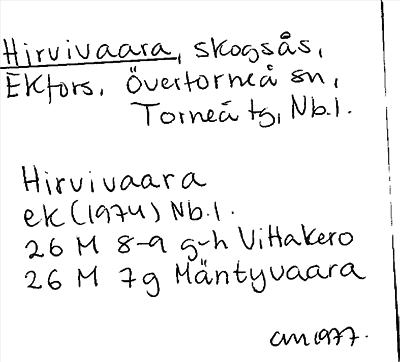 Hirvivaara, skogsås,
Ekfors, Övertorneå sn,
Torneå tg, Nb.l.
Hirvivaara
ek (1974) Nb.l.
26 M 8-9 g-h Vittakero
26 M 7g Mäntyvaara
am 1977.